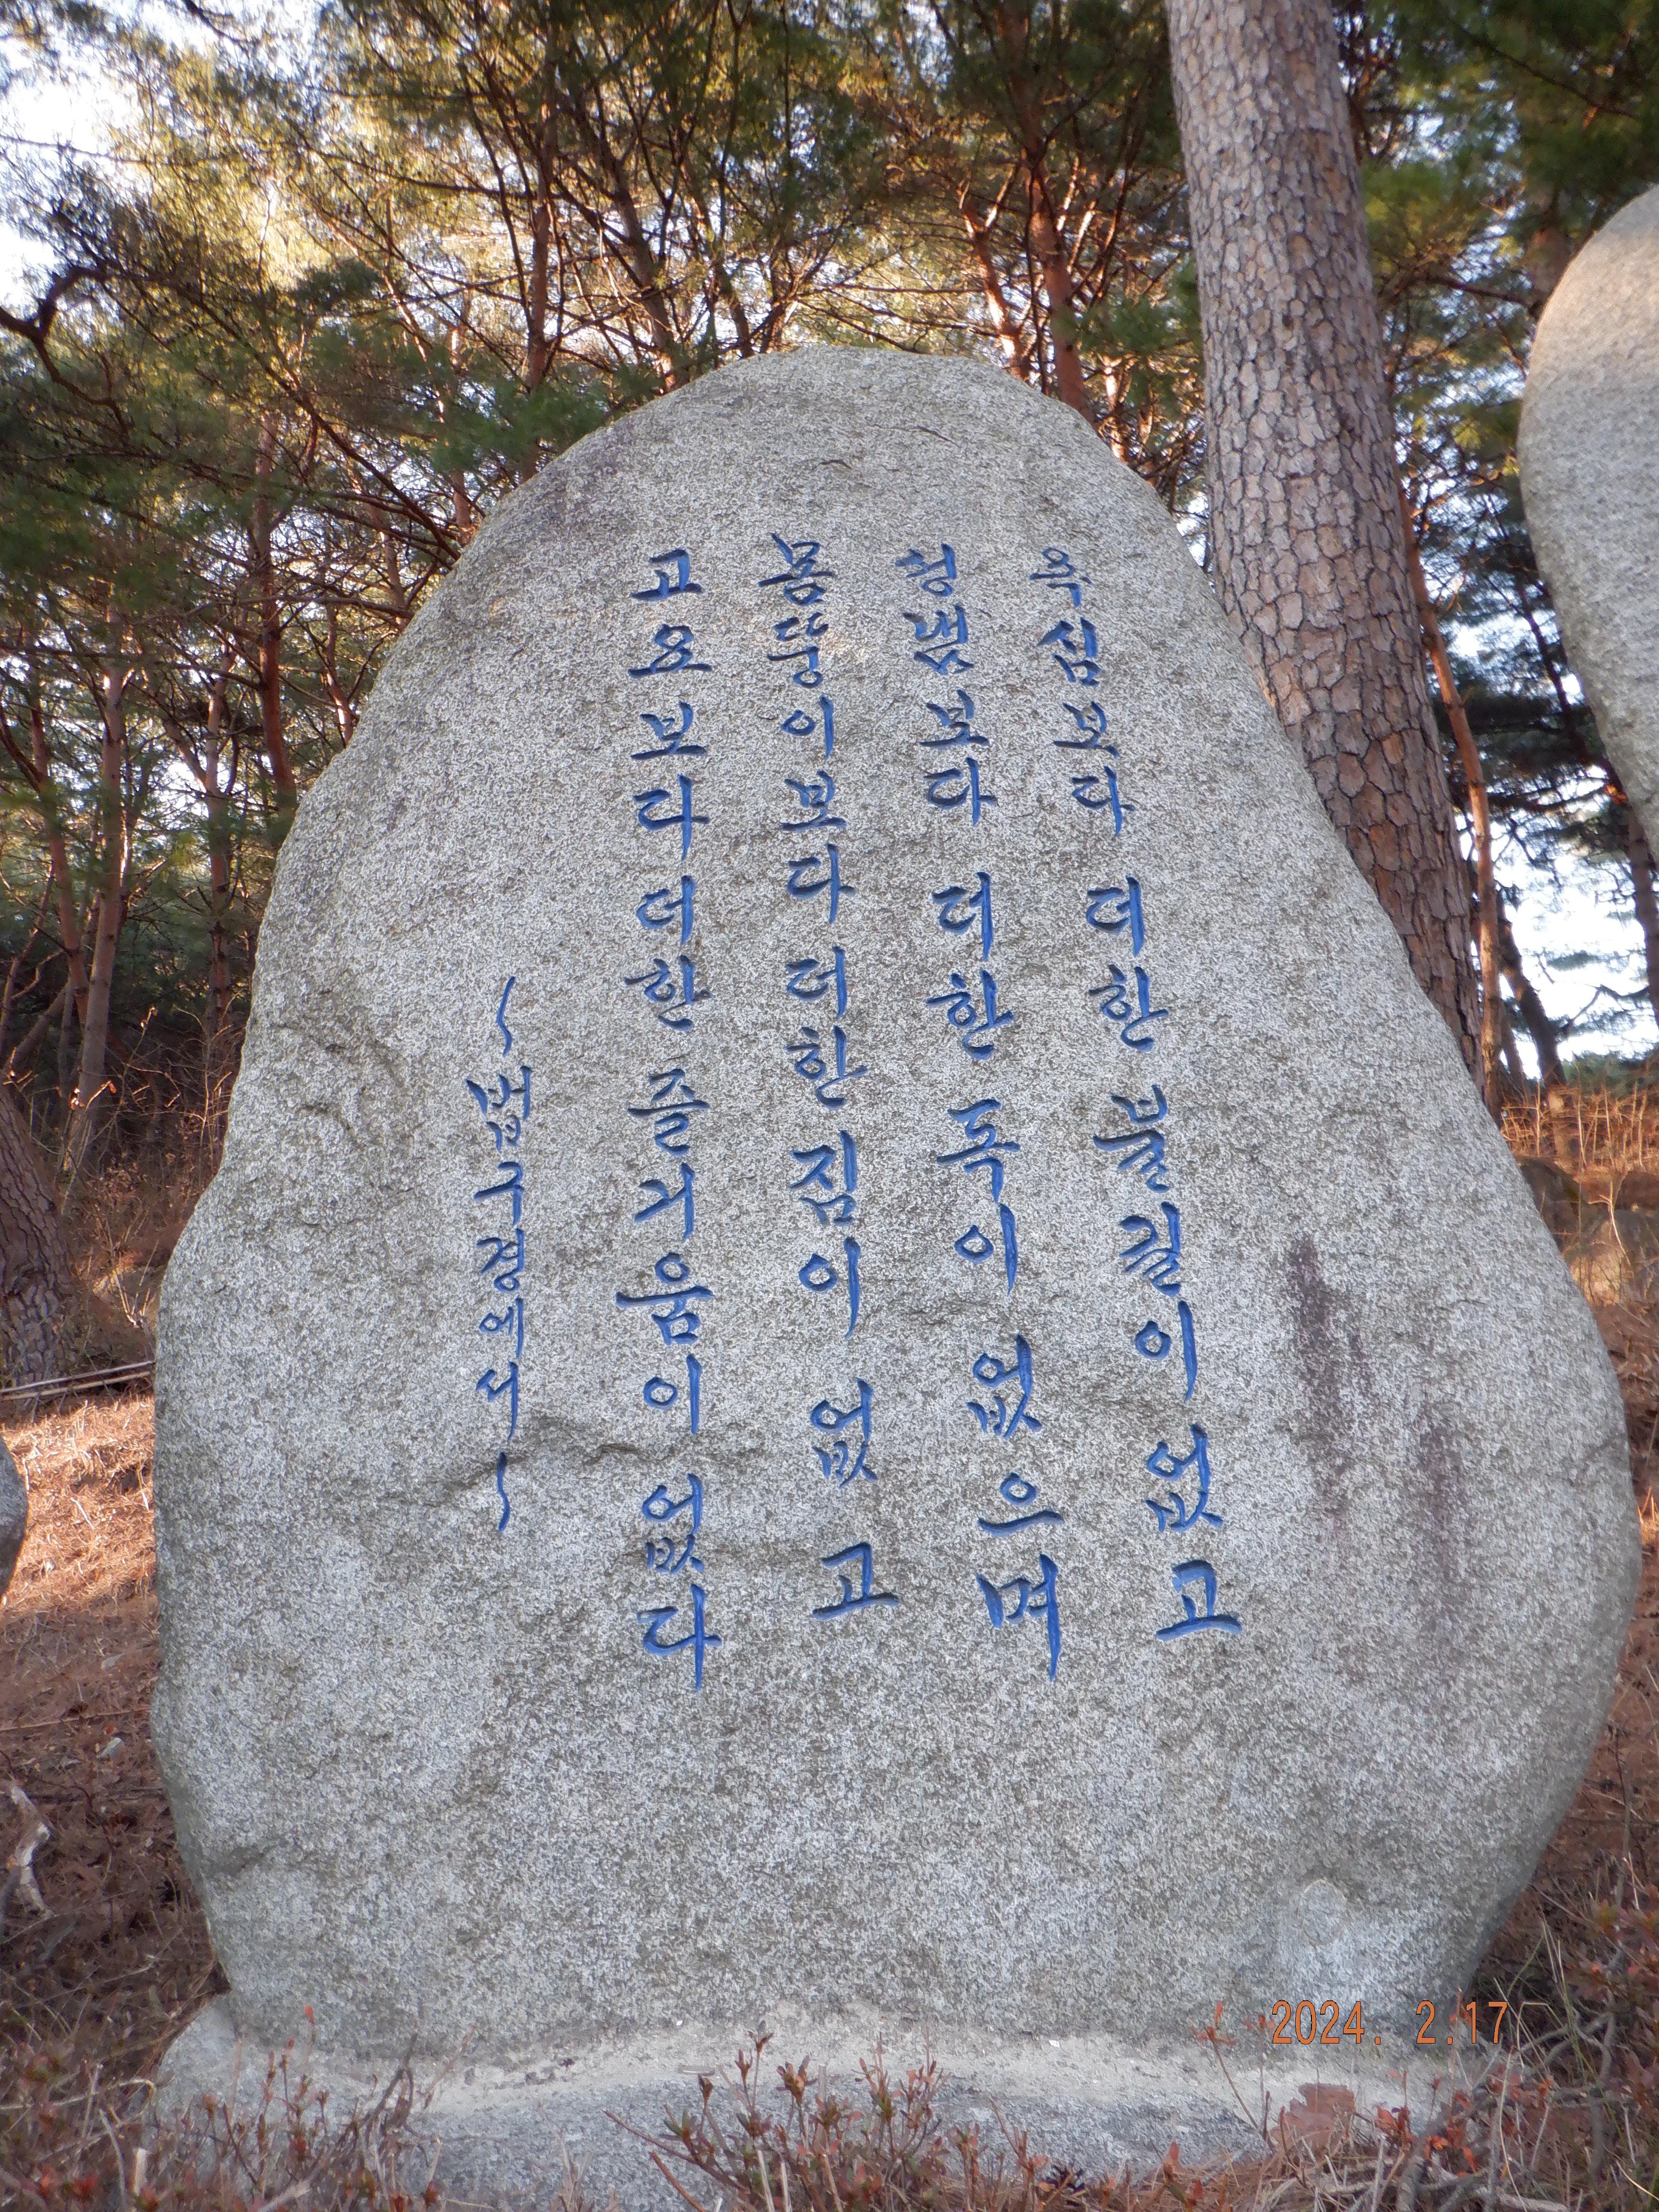 욕심보다 더한 불길이 없고
성냄보다 더한 독이 없으며
몸뚱이보다 더한 짐이 없고
고요보다 더한 즐거움이 없다
~법구경에서~
2024. 2.17